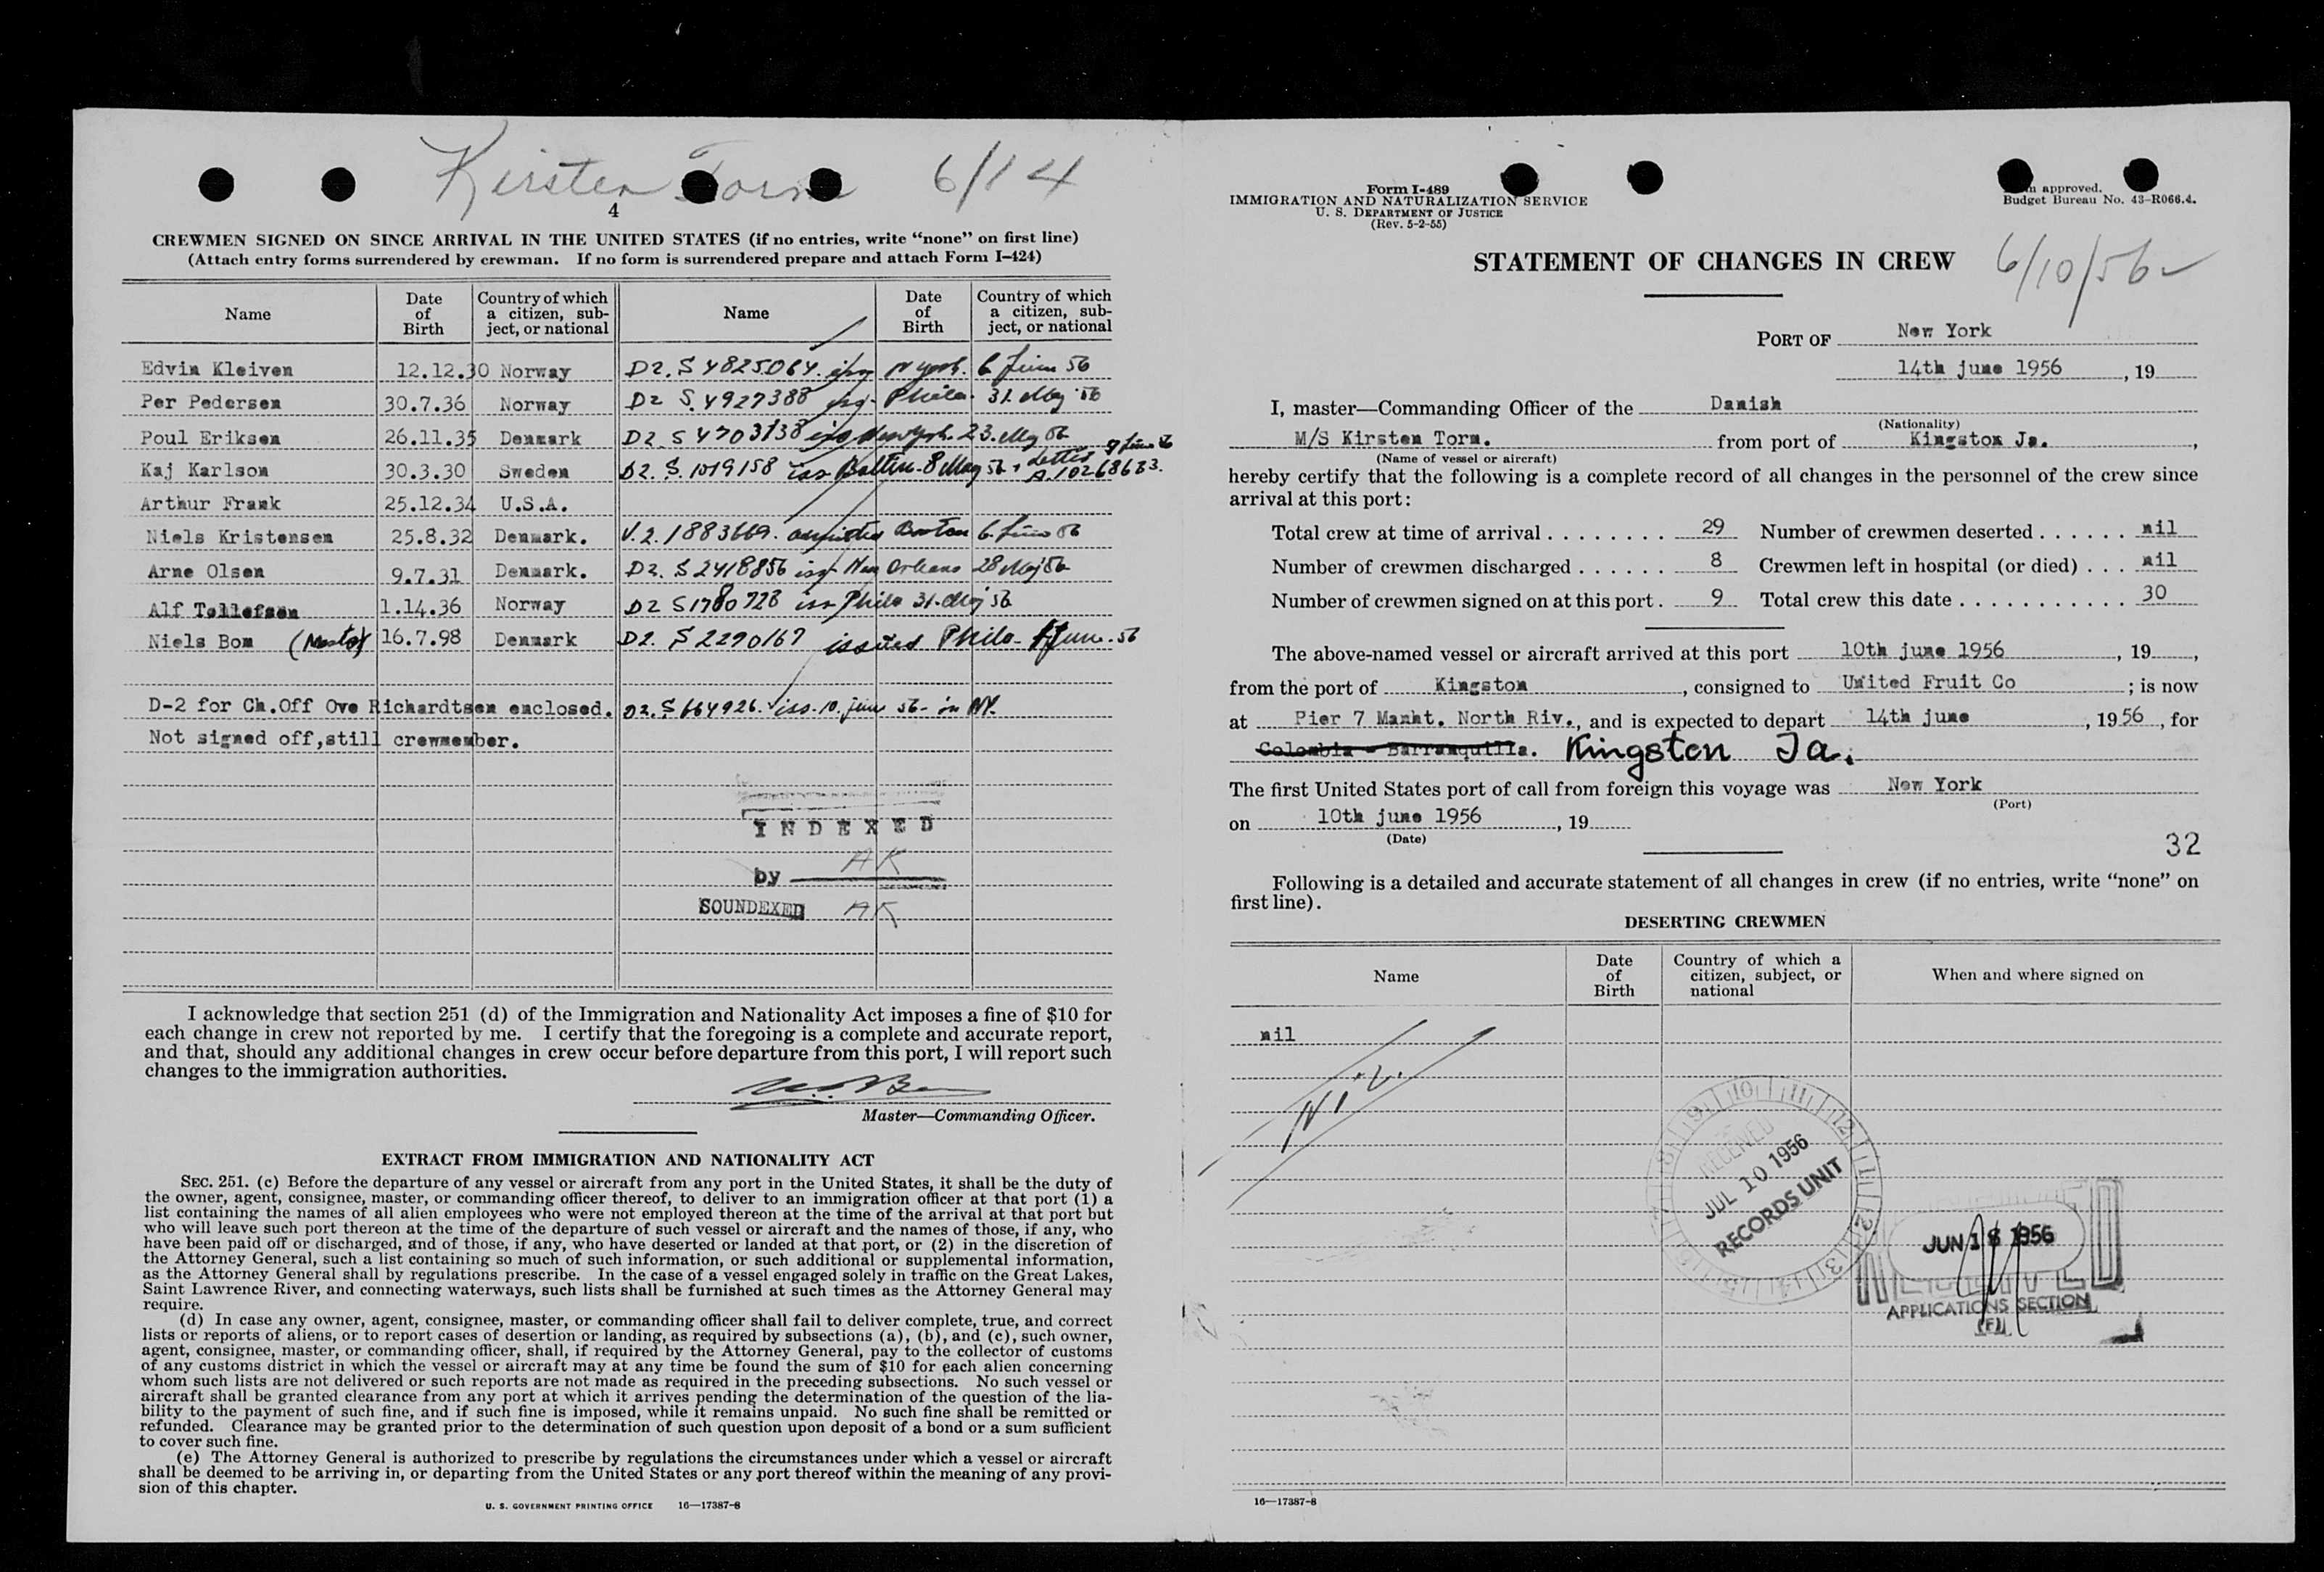 Kirsten Torm 6/14
4
CREWMEN SIGNED ON SINCE ARRIVAL IN THE UNITED STATES (if no entries, write “none” on first line)
(Attach entry forms surrendered by crewman. If no form is surrendered prepare and attach Form I-424)
Name Date of Birth Country of which a citizen, subject, or national Name Date of Birth Country of which a citizen, subject, or national
Edvin Kleiven 12.12.30 Norway D2. S 4825064. iss N york. 6 June 56
Per Pedersen 30.7.36 Norway D2 S. 4927388 iss. Phila. 31. May 56
Poul Eriksen 26.11.35 Denmark D2. S 4703138 iss Newyork. 23. May 56
Kaj Karlson 30.3.30 Sweden D2. S. 1019158 iss Baltim. 8 May 56 + Letter 9 June 56 A.10268633.
Arthur Frank 25.12.34 U.S.A.
Niels Kristensen 25.8.32 Denmark. V.2. 1883669. admitted Boston 6. June 56
Arne Olsen 9.7.31 Denmark. D2. S 2418856 iss New Orleans 28 May 56
Alf Tøllefsen 1.14.36 Norway D2 S1780728 iss Phila 31. May 56
Niels Bom (Master) 16.7.98 Denmark D2. S 2290167 issued Phila. 1 June. 56
D-2 for Ch.Off Ove Richardtsen enclosed. D2. S 664926. iss. 10. june 56- in NY.
Not signed off,still crewmember.
INDEXED
by AK
SOUNDEXED AK
I acknowledge that section 251 (d) of the Immigration and Nationality Act imposes a fine of $10 for
each change in crew not reported by me. I certify that the foregoing is a complete and accurate report,
and that, should any additional changes in crew occur before departure from this port, I will report such
changes to the immigration authorities.
Master—Commanding Officer.
EXTRACT FROM IMMIGRATION AND NATIONALITY ACT
SEC. 251. (c) Before the departure of any vessel or aircraft from any port in the United States, it shall be the duty of
the owner, agent, consignee, master, or commanding officer thereof, to deliver to an immigration officer at that port (1) a
list containing the names of all alien employees who were not employed thereon at the time of the arrival at that port but
who will leave such port thereon at the time of the departure of such vessel or aircraft and the names of those, if any, who
have been paid off or discharged, and of those, if any, who have deserted or landed at that port, or (2) in the discretion of
the Attorney General, such a list containing so much of such information, or such additional or supplemental information,
as the Attorney General shall by regulations prescribe. In the case of a vessel engaged solely in traffic on the Great Lakes,
Saint Lawrence River, and connecting waterways, such lists shall be furnished at such times as the Attorney General may
require.
(d) In case any owner, agent, consignee, master, or commanding officer shall fail to deliver complete, true, and correct
lists or reports of aliens, or to report cases of desertion or landing, as required by subsections (a), (b), and (c), such owner,
agent, consignee, master, or commanding officer, shall, if required by the Attorney General, pay to the collector of customs
of any customs district in which the vessel or aircraft may at any time be found the sum of $10 for each alien concerning
whom such lists are not delivered or such reports are not made as required in the preceding subsections. No such vessel or
aircraft shall be granted clearance from any port at which it arrives pending the determination of the question of the lia-
bility to the payment of such fine, and if such fine is imposed, while it remains unpaid. No such fine shall be remitted or
refunded. Clearance may be granted prior to the determination of such question upon deposit of a bond or a sum sufficient
to cover such fine.
(e) The Attorney General is authorized to prescribe by regulations the circumstances under which a vessel or aircraft
shall be deemed to be arriving in, or departing from the United States or any port thereof within the meaning of any provi-
sion of this chapter.
U. S. GOVERNMENT PRINTING OFFICE 16—17387-8
Form I-489
IMMIGRATION AND NATURALIZATION SERVICE
U. S. DEPARTMENT OF JUSTICE
(Rev. 5-2-55)
approved.
Budget Bureau No. 43-R066.4.
STATEMENT OF CHANGES IN CREW
6/10/56
PORT OF New York
14th june 1956, 19
I, master—Commanding Officer of the Danish
(Nationality)
M/S Kirsten Torm. from port of Kingston Ja.,
(Name of vessel or aircraft)
hereby certify that the following is a complete record of all changes in the personnel of the crew since
arrival at this port:
Total crew at time of arrival . . . . . . . . 29 Number of crewmen deserted . . . . . . nil
Number of crewmen discharged . . . . . . 8 Crewmen left in hospital (or died) . . . nil
Number of crewmen signed on at this port . 9 Total crew this date . . . . . . . . . . . 30
The above-named vessel or aircraft arrived at this port 10th june 1956, 19,
from the port of Kingston, consigned to United Fruit Co; is now
at Pier 7 Manht. North Riv., and is expected to depart 14th june, 1956, for
Colombia - Barranquilla. Kingston Ja.
The first United States port of call from foreign this voyage was New York
(Port)
on 10th june 1956, 19
(Date)
32
Following is a detailed and accurate statement of all changes in crew (if no entries, write “none” on
first line).
DESERTING CREWMEN
Name Date of Birth Country of which a citizen, subject, or national When and where signed on
nil
Nil.
RECEIVED
JUL 10 1956
RECORDS UNIT
JUN 18 1956
APPLICATIONS SECTION
(F)
16—17387-8